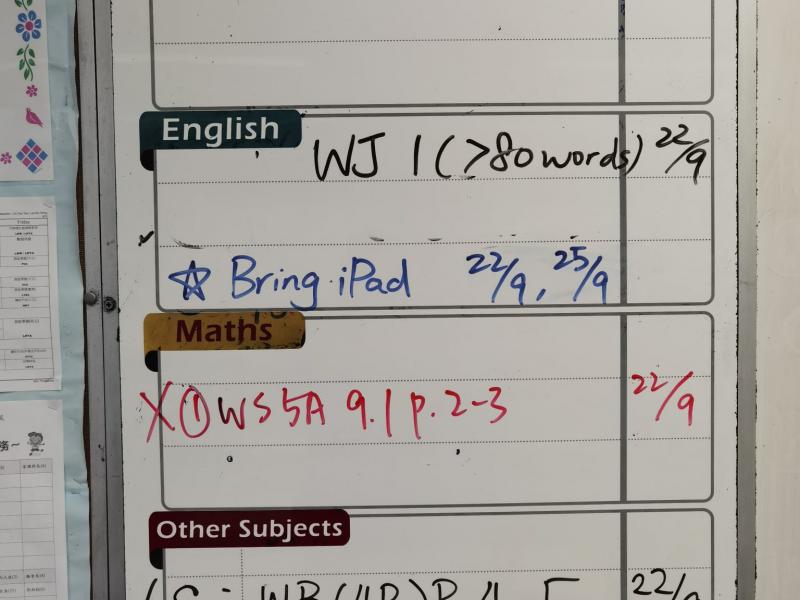 English
WJ 1 (>80 words) 22/9
☆ Bring iPad 22/9, 25/9
Maths
X ① WS 5A 9.1 p.2-3 22/9
Other Subjects
22/9